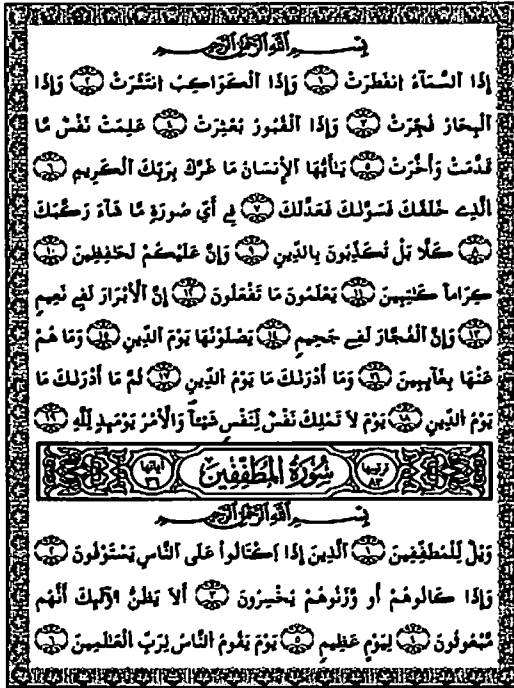 بِسْمِ اللَّهِ الرَّحْمَٰنِ الرَّحِيمِ
إِذَا السَّمَآءُ انفَطَرَتْ ١ وَإِذَا الْكَوَاكِبُ انتَثَرَتْ ٢ وَإِذَا
الْبِحَارُ فُجِّرَتْ ٣ وَإِذَا الْقُبُورُ بُعْثِرَتْ ٤ عَلِمَتْ نَفْسٌ مَّا
قَدَّمَتْ وَأَخَّرَتْ ٥ يَٰٓأَيُّهَا الْإِنسَانُ مَا غَرَّكَ بِرَبِّكَ الْكَرِيمِ ٦
الَّذِے خَلَقَكَ فَسَوَّىٰكَ فَعَدَّلَكَ ٧ فِے أَيِّ صُورَةٍ مَّا شَآءَ رَكَّبَكَ
٨ كَلَّا بَلْ تُكَذِّبُونَ بِالدِّينِ ٩ وَإِنَّ عَلَيْكُمْ لَحَٰفِظِينَ ١٠
كِرَاماً كَٰتِبِينَ ١١ يَعْلَمُونَ مَا تَفْعَلُونَ ١٢ إِنَّ الْأَبْرَارَ لَفِے نَعِيمٍ
١٣ وَإِنَّ الْفُجَّارَ لَفِے جَحِيمٍ ١٤ يَصْلَوْنَهَا يَوْمَ الدِّينِ ١٥ وَمَا هُمْ
عَنْهَا بِغَآئِبِينَ ١٦ وَمَا أَدْرَىٰكَ مَا يَوْمُ الدِّينِ ١٧ ثُمَّ مَا أَدْرَىٰكَ مَا
يَوْمُ الدِّينِ ١٨ يَوْمَ لَا تَمْلِكُ نَفْسٌ لِّنَفْسٍ شَيْـٔاً وَالْأَمْرُ يَوْمَئِذٍ لِّلَّهِ ١٩
ترتيبها ٨٣ سُورَةُ الْمُطَفِّفِينَ آياتها ٣٦
بِسْمِ اللَّهِ الرَّحْمَٰنِ الرَّحِيمِ
وَيْلٌ لِّلْمُطَفِّفِينَ ١ الَّذِينَ إِذَا اكْتَالُواْ عَلَى النَّاسِ يَسْتَوْفُونَ ٢
وَإِذَا كَالُوهُمْ أَو وَّزَنُوهُمْ يُخْسِرُونَ ٣ أَلَا يَظُنُّ أُوْلَٰٓئِكَ أَنَّهُم
مَّبْعُوثُونَ ٤ لِيَوْمٍ عَظِيمٍ ٥ يَوْمَ يَقُومُ النَّاسُ لِرَبِّ الْعَٰلَمِينَ ٦